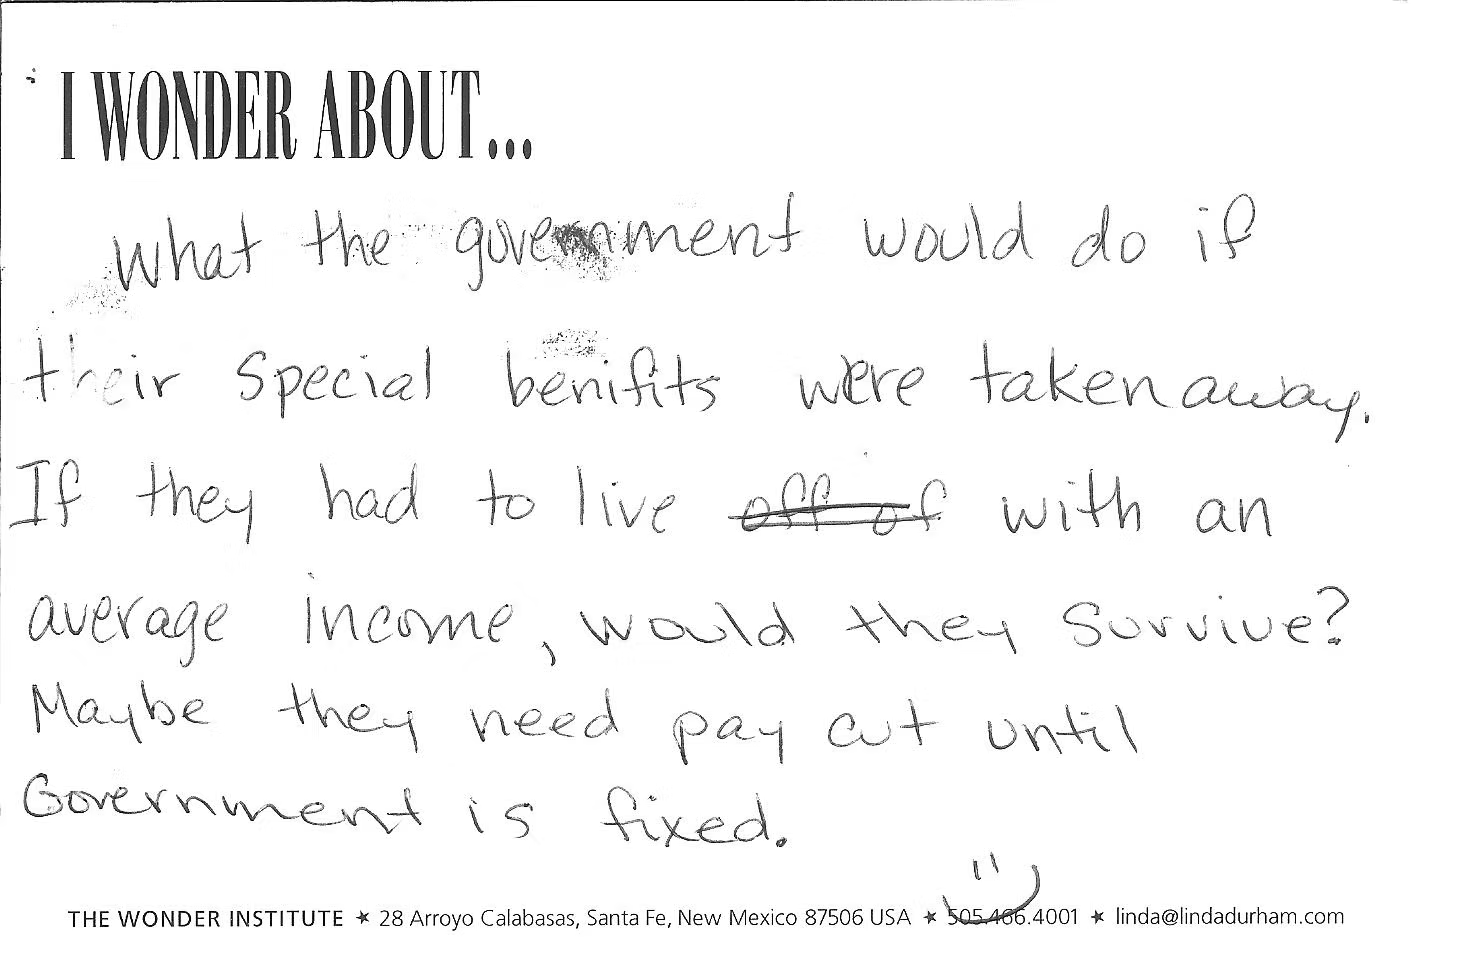 I WONDER ABOUT...
What the government would do if
their special benifits were taken away.
If they had to live off of with an
average income, would they survive?
Maybe they need pay cut until
Government is fixed.
THE WONDER INSTITUTE ★ 28 Arroyo Calabasas, Santa Fe, New Mexico 87506 USA ★ 505.466.4001 ★ linda@lindadurham.com